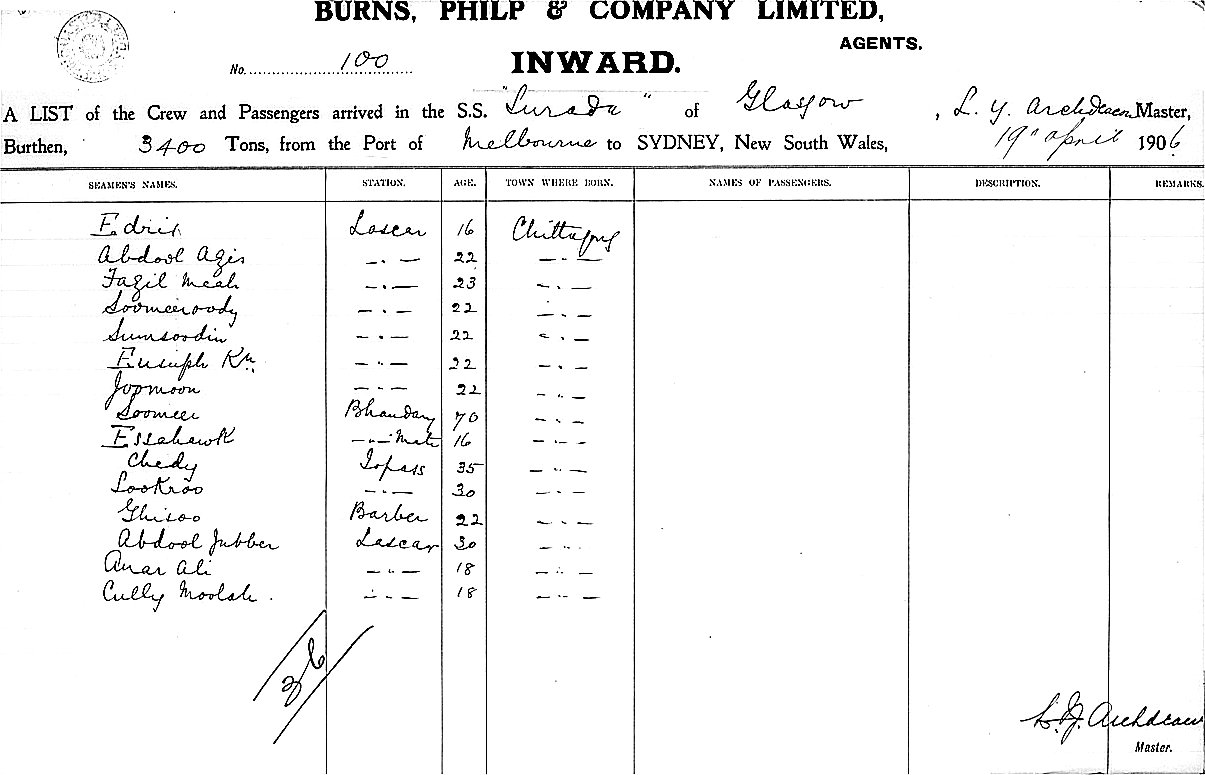 BURNS, PHILP & COMPANY LIMITED,
AGENTS.
No. 100
INWARD.
A LIST of the Crew and Passengers arrived in the S.S. "Surada" of Glasgow, L. J. Archdeacon Master,
Burthen, 3400 Tons, from the Port of Melbourne to SYDNEY, New South Wales, 19" April 1906
SEAMEN'S NAMES. STATION. AGE. TOWN WHERE BORN. NAMES OF PASSENGERS. DESCRIPTION. REMARKS.
Edris Lascar 16 Chittagong
Abdool Agis —"— 22 —"—
Fazil Meah —"— 23 —"—
Soomeeroody —"— 22 —"—
Sumsoodin —"— 22 —"—
Eusuph Kn. —"— 22 —"—
Joomoon —"— 22 —"—
Soomeer Bhandary 70 —"—
Essahawk —"— Mate 16 —"—
Chedy Topass 35 —"—
Lookroo —"— 30 —"—
Ghisoo Barber 22 —"—
Abdool Jubber Lascar 30 —"—
Anar Ali —"— 18 —"—
Cully Moolah. —"— 18 —"—
36
L. J. Archdeacon
Master.